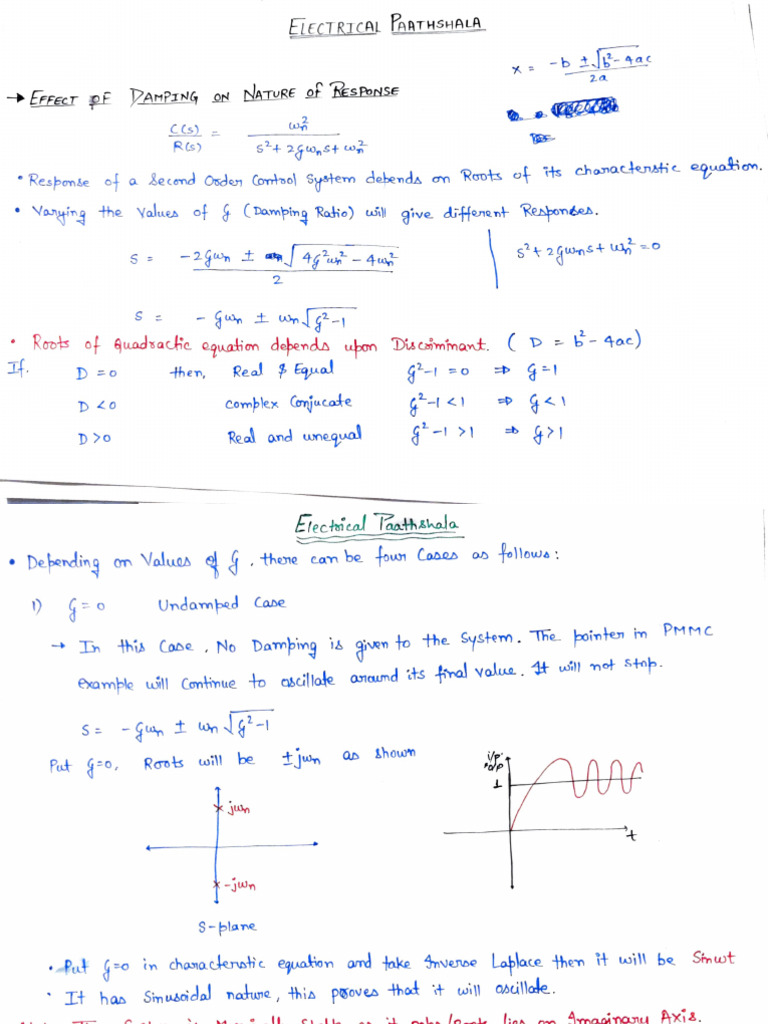 ELECTRICAL PAATHSHALA
x = -b ± √b²-4ac / 2a
→ EFFECT OF DAMPING ON NATURE OF RESPONSE
C(s)/R(s) = ωn² / s²+2ζωns+ωn²
• Response of a Second Order Control System depends on Roots of its characterstic equation.
• Varying the Values of ζ (Damping Ratio) will give different Responses.
s = -2ζωn ± √4ζ²ωn²-4ωn² / 2 | s²+2ζωns+ωn²=0
s = -ζωn ± ωn√ζ²-1
• Roots of Quadractic equation depends upon Discriminant. (D = b²-4ac)
If. D=0 then, Real & Equal ζ²-1=0 ⇒ ζ=1
D<0 complex Conjucate ζ²-1<1 ⇒ ζ<1
D>0 Real and unequal ζ²-1>1 ⇒ ζ>1
Electrical Paathshala
• Depending on Values of ζ, there can be four Cases as follows:
1) ζ=0 Undamped Case
→ In this Case, No Damping is given to the System. The pointer in PMMC
example will Continue to oscillate around its final value. It will not stop.
s = -ζωn ± ωn√ζ²-1
Put ζ=0, Roots will be ±jωn as shown
i/p
o/p
1
t
jωn
-jωn
S-plane
• Put ζ=0 in characterstic equation and take Inverse Laplace then it will be Sinωt
• It has Sinusoidal nature, this proves that it will oscillate.
lies on Imaginary Axis.